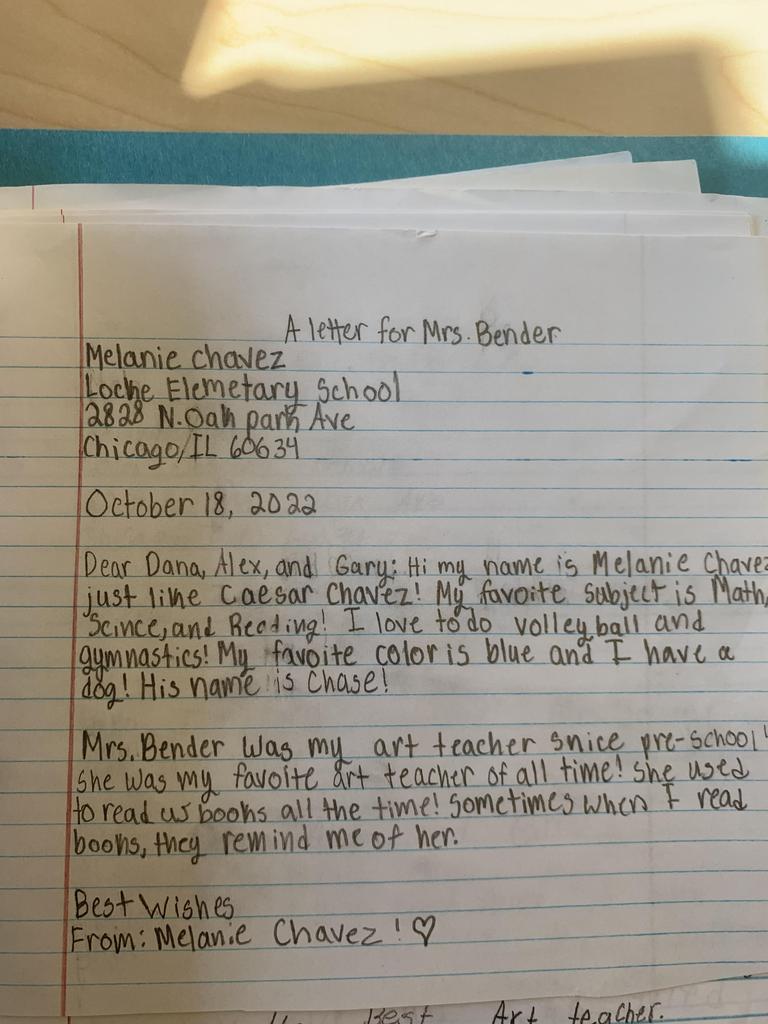 A letter for Mrs. Bender
Melanie Chavez
Locke Elemetary School
2828 N. Oak park Ave
Chicago, IL 60634
October 18, 2022
Dear Dana, Alex, and Gary: Hi my name is Melanie Chavez
just like Caesar Chavez! My favoite subject is Math,
Scince, and Reading! I love to do volleyball and
gymnastics! My favoite color is blue and I have a
dog! His name is Chase!
Mrs. Bender was my art teacher snice pre-school!
she was my favoite art teacher of all time! she used
to read us books all the time! Sometimes when I read
books, they remind me of her.
Best Wishes
From: Melanie Chavez! ♡
Best Art teacher.